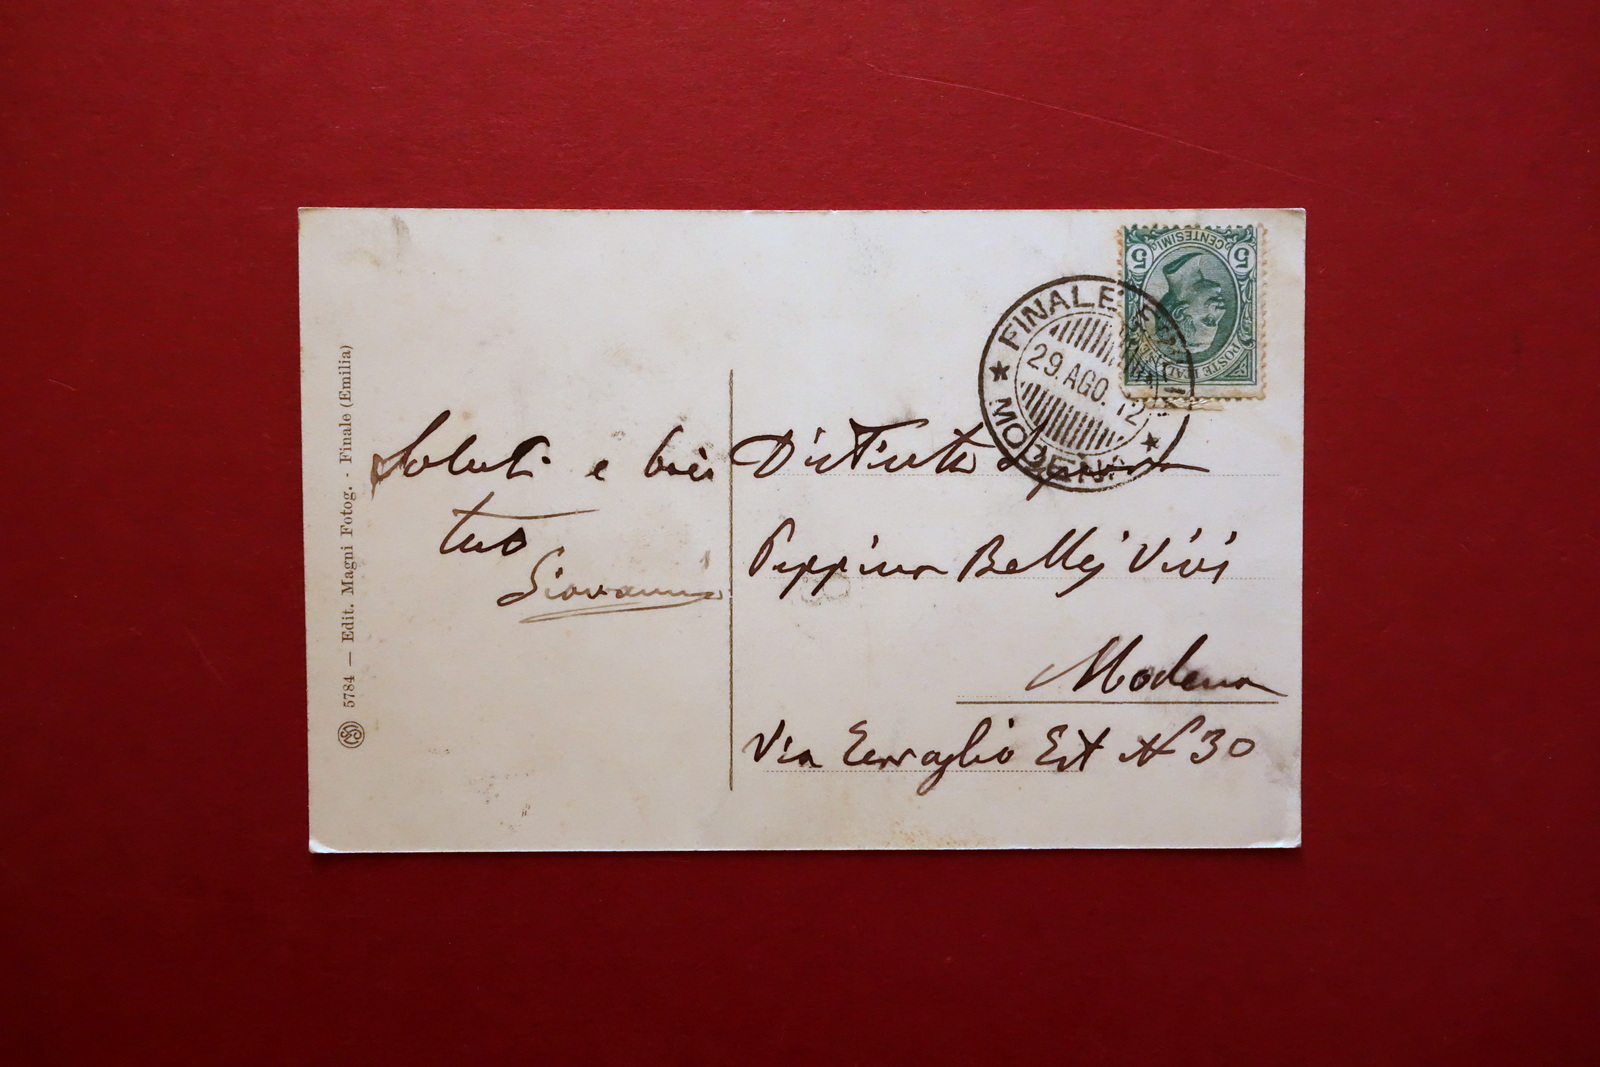 5784 — Edit. Magni Fotog. - Finale (Emilia)
Saluti e baci
tuo
Giovanni
5 CENTESIMI 5
POSTE ITALIANE
FINALE EMILIA
29.AGO.12
MODENA
Distinta Signora
Peppina Bellei Vivi
Modena
Via Terraglio Est N 30